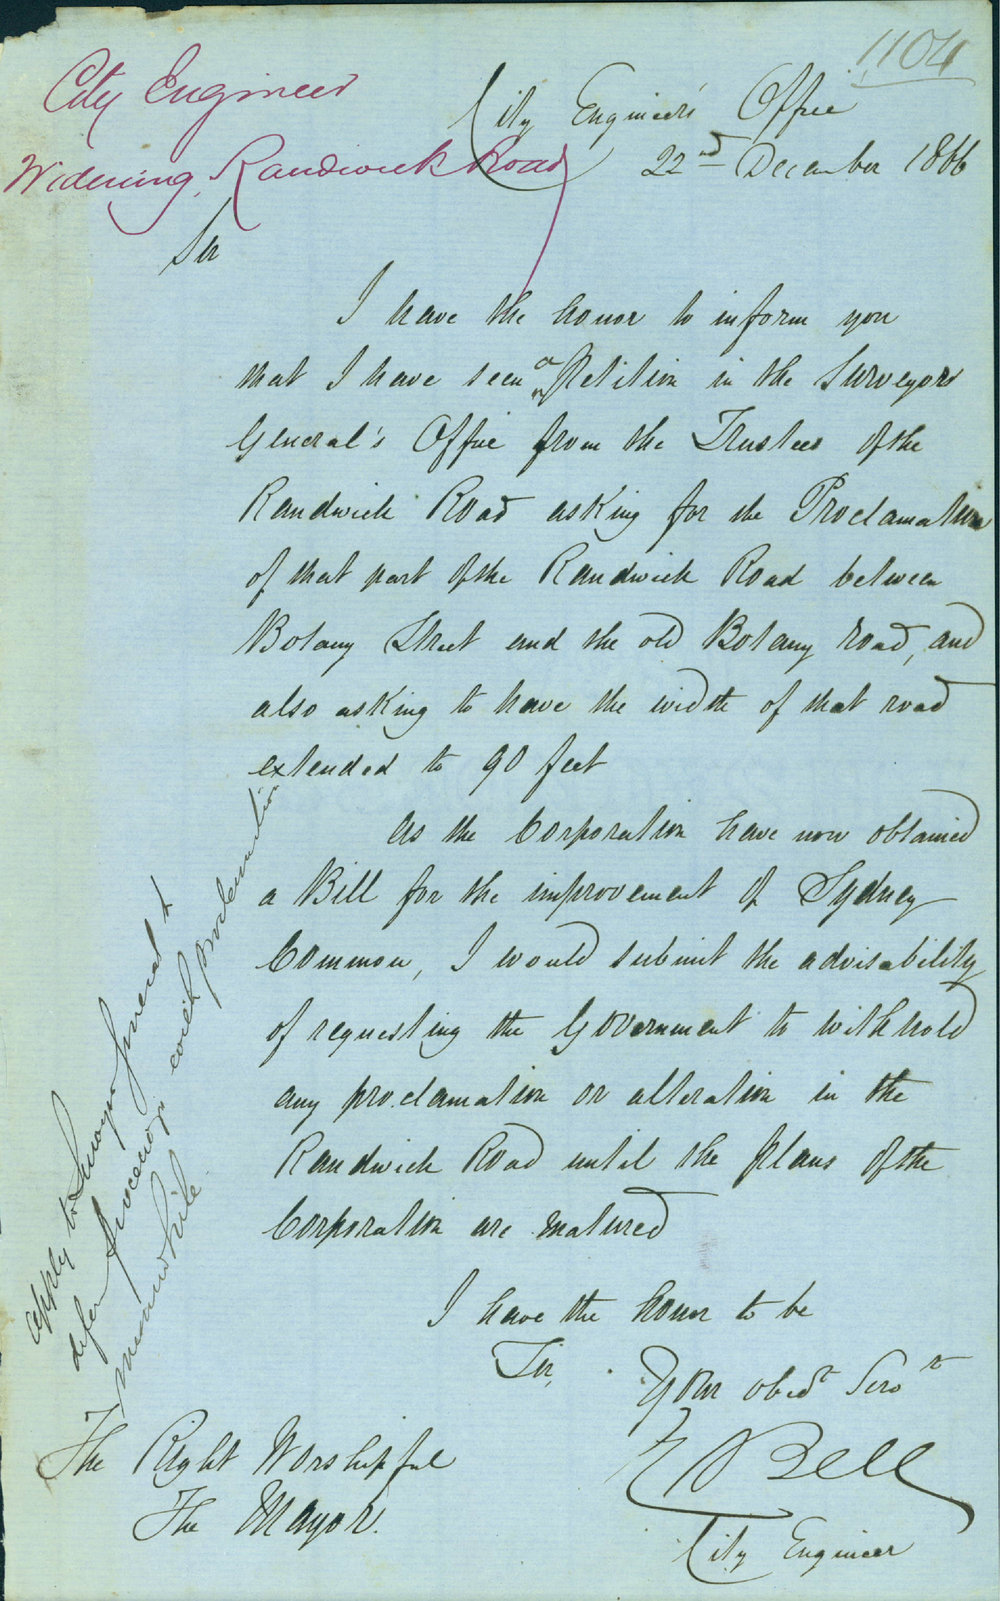 1104
City Engineer
Widening, Randwick Road
City Engineer's Office
22nd December 1866
Sir
I have the honor to inform you
that I have seen a Petition in the Surveyors
General's Office from the Trustees of the
Randwick Road asking for the Proclamation
of that part of the Randwick Road between
Botany Street and the old Botany road, and
also asking to have the width of that road
extended to 90 feet
As the Corporation have now obtained
a Bill for the improvement of Sydney
Common, I would submit the advisability
of requesting the Government to withhold
any proclamation or alteration in the
Randwick Road until the plans of the
Corporation are matured
I have the honor to be
Sir,
Your obedt Servt
E Bell
City Engineer
The Right Worshipful
The Mayor.
apply to Surveyor General to
defer proceeding with proclamation
meanwhile